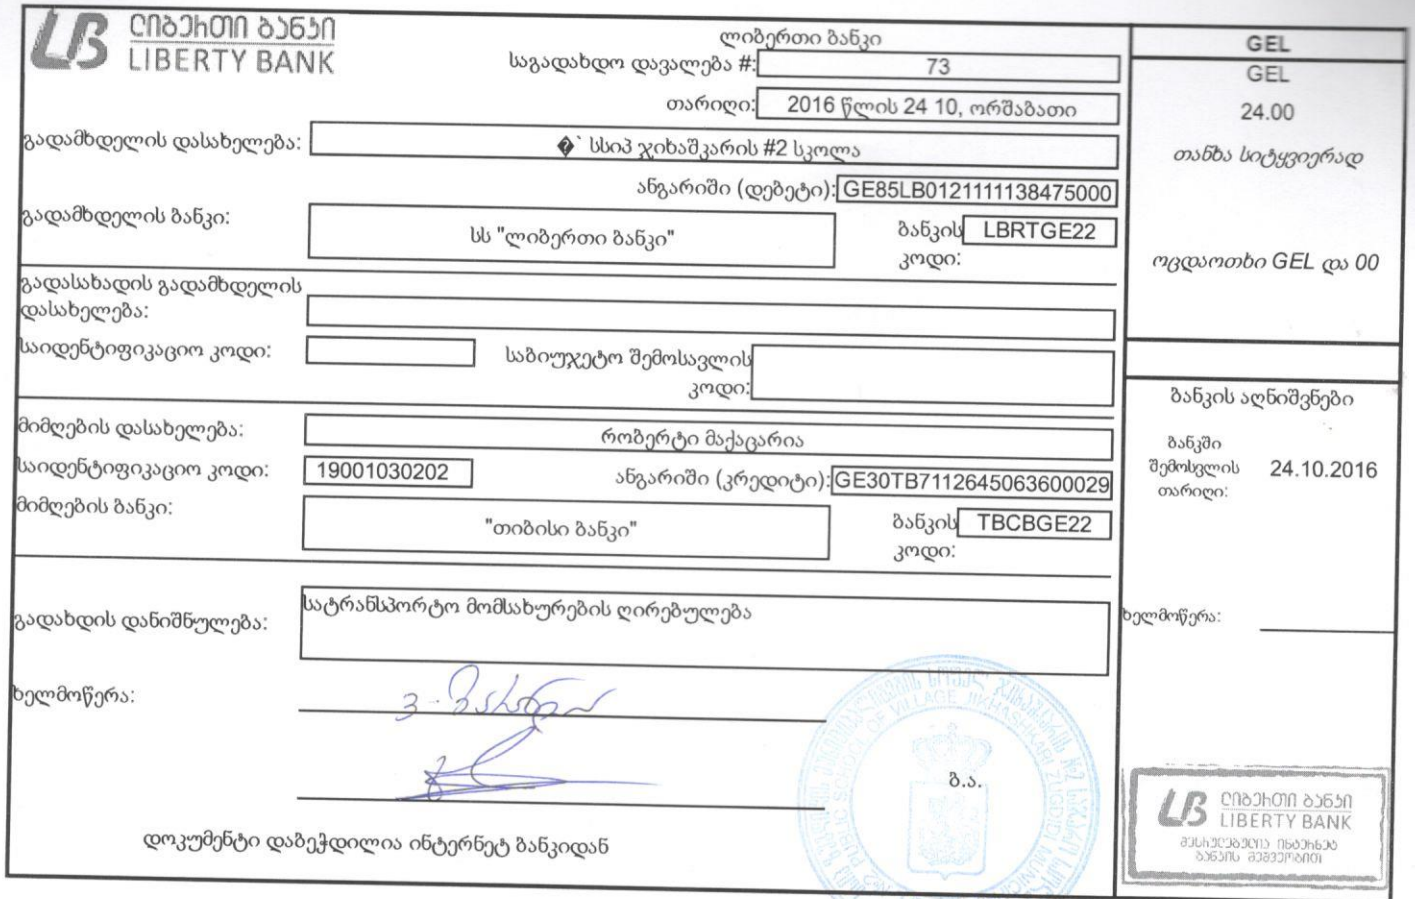 ლიბერთი ბანკი
LIBERTY BANK
ლიბერთი ბანკი
საგადახდო დავალება #: 73
თარიღი: 2016 წლის 24 10, ორშაბათი
გადამხდელის დასახელება: �` სსიპ ჯიხაშკარის #2 სკოლა
ანგარიში (დებეტი): GE85LB0121111138475000
გადამხდელის ბანკი: სს "ლიბერთი ბანკი" ბანკის კოდი: LBRTGE22
გადასახადის გადამხდელის
დასახელება:
საიდენტიფიკაციო კოდი: საბიუჯეტო შემოსავლის
კოდი:
მიმღების დასახელება: რობერტი მაქაცარია
საიდენტიფიკაციო კოდი: 19001030202 ანგარიში (კრედიტი): GE30TB7112645063600029
მიმღების ბანკი: "თიბისი ბანკი" ბანკის კოდი: TBCBGE22
გადახდის დანიშნულება: სატრანსპორტო მომსახურების ღირებულება
ხელმოწერა:
ბ.ა.
დოკუმენტი დაბეჭდილია ინტერნეტ ბანკიდან
GEL
GEL
24.00
თანხა სიტყვიერად
ოცდაოთხი GEL და 00
ბანკის აღნიშვნები
ბანკში
შემოსვლის 24.10.2016
თარიღი:
ხელმოწერა:
ლიბერთი ბანკი
LIBERTY BANK
შესრულებულია ინტერნეტ
ბანკის მეშვეობით
PUBLIC SCHOOL OF VILLAGE JIKHASHKARI ZUGDIDI